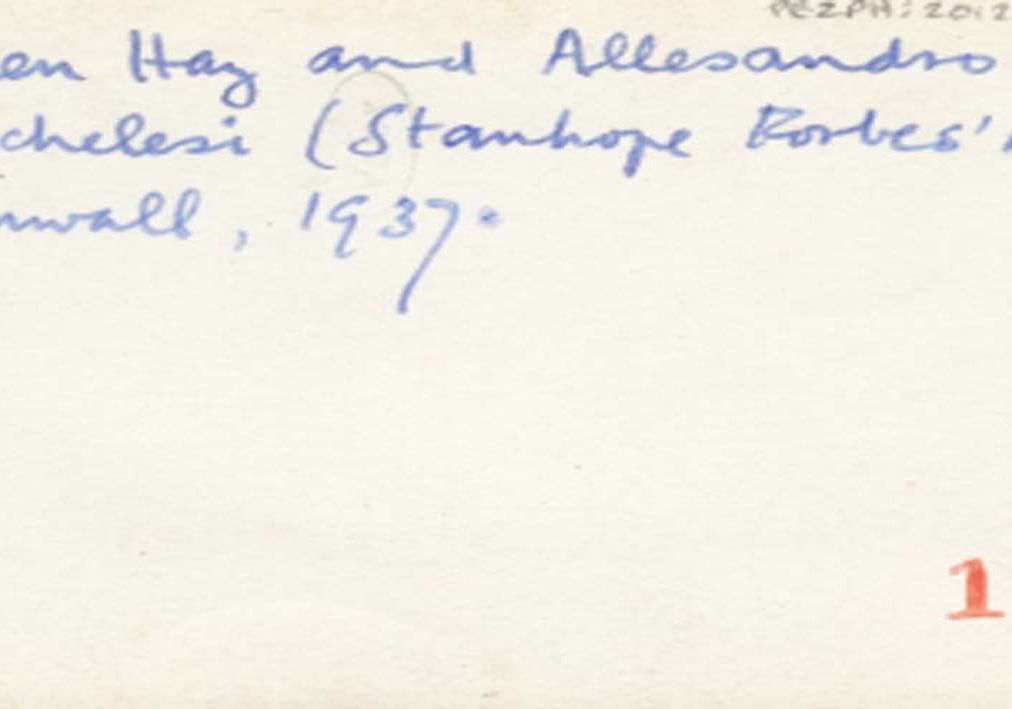 PEZPH:2012
en Hay and Allesandro
chelesi (Stanhope Forbes'
nwall, 1937.
1